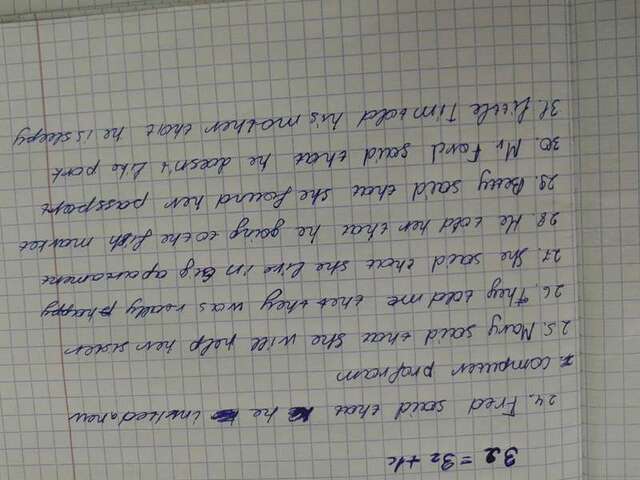 32 = 3z + 1c
24. Fred said that he invited a new
computer profram
25. Mary said that she will help her sister
26. They told me thet they was really happy
27. She said that she live in big apartament
28. He told her that he going to the fish market
29. Betty said that she found her passport
30. Mr Ford said that he doesn't like pork
31. Little Tim told his mother that he is sleepy